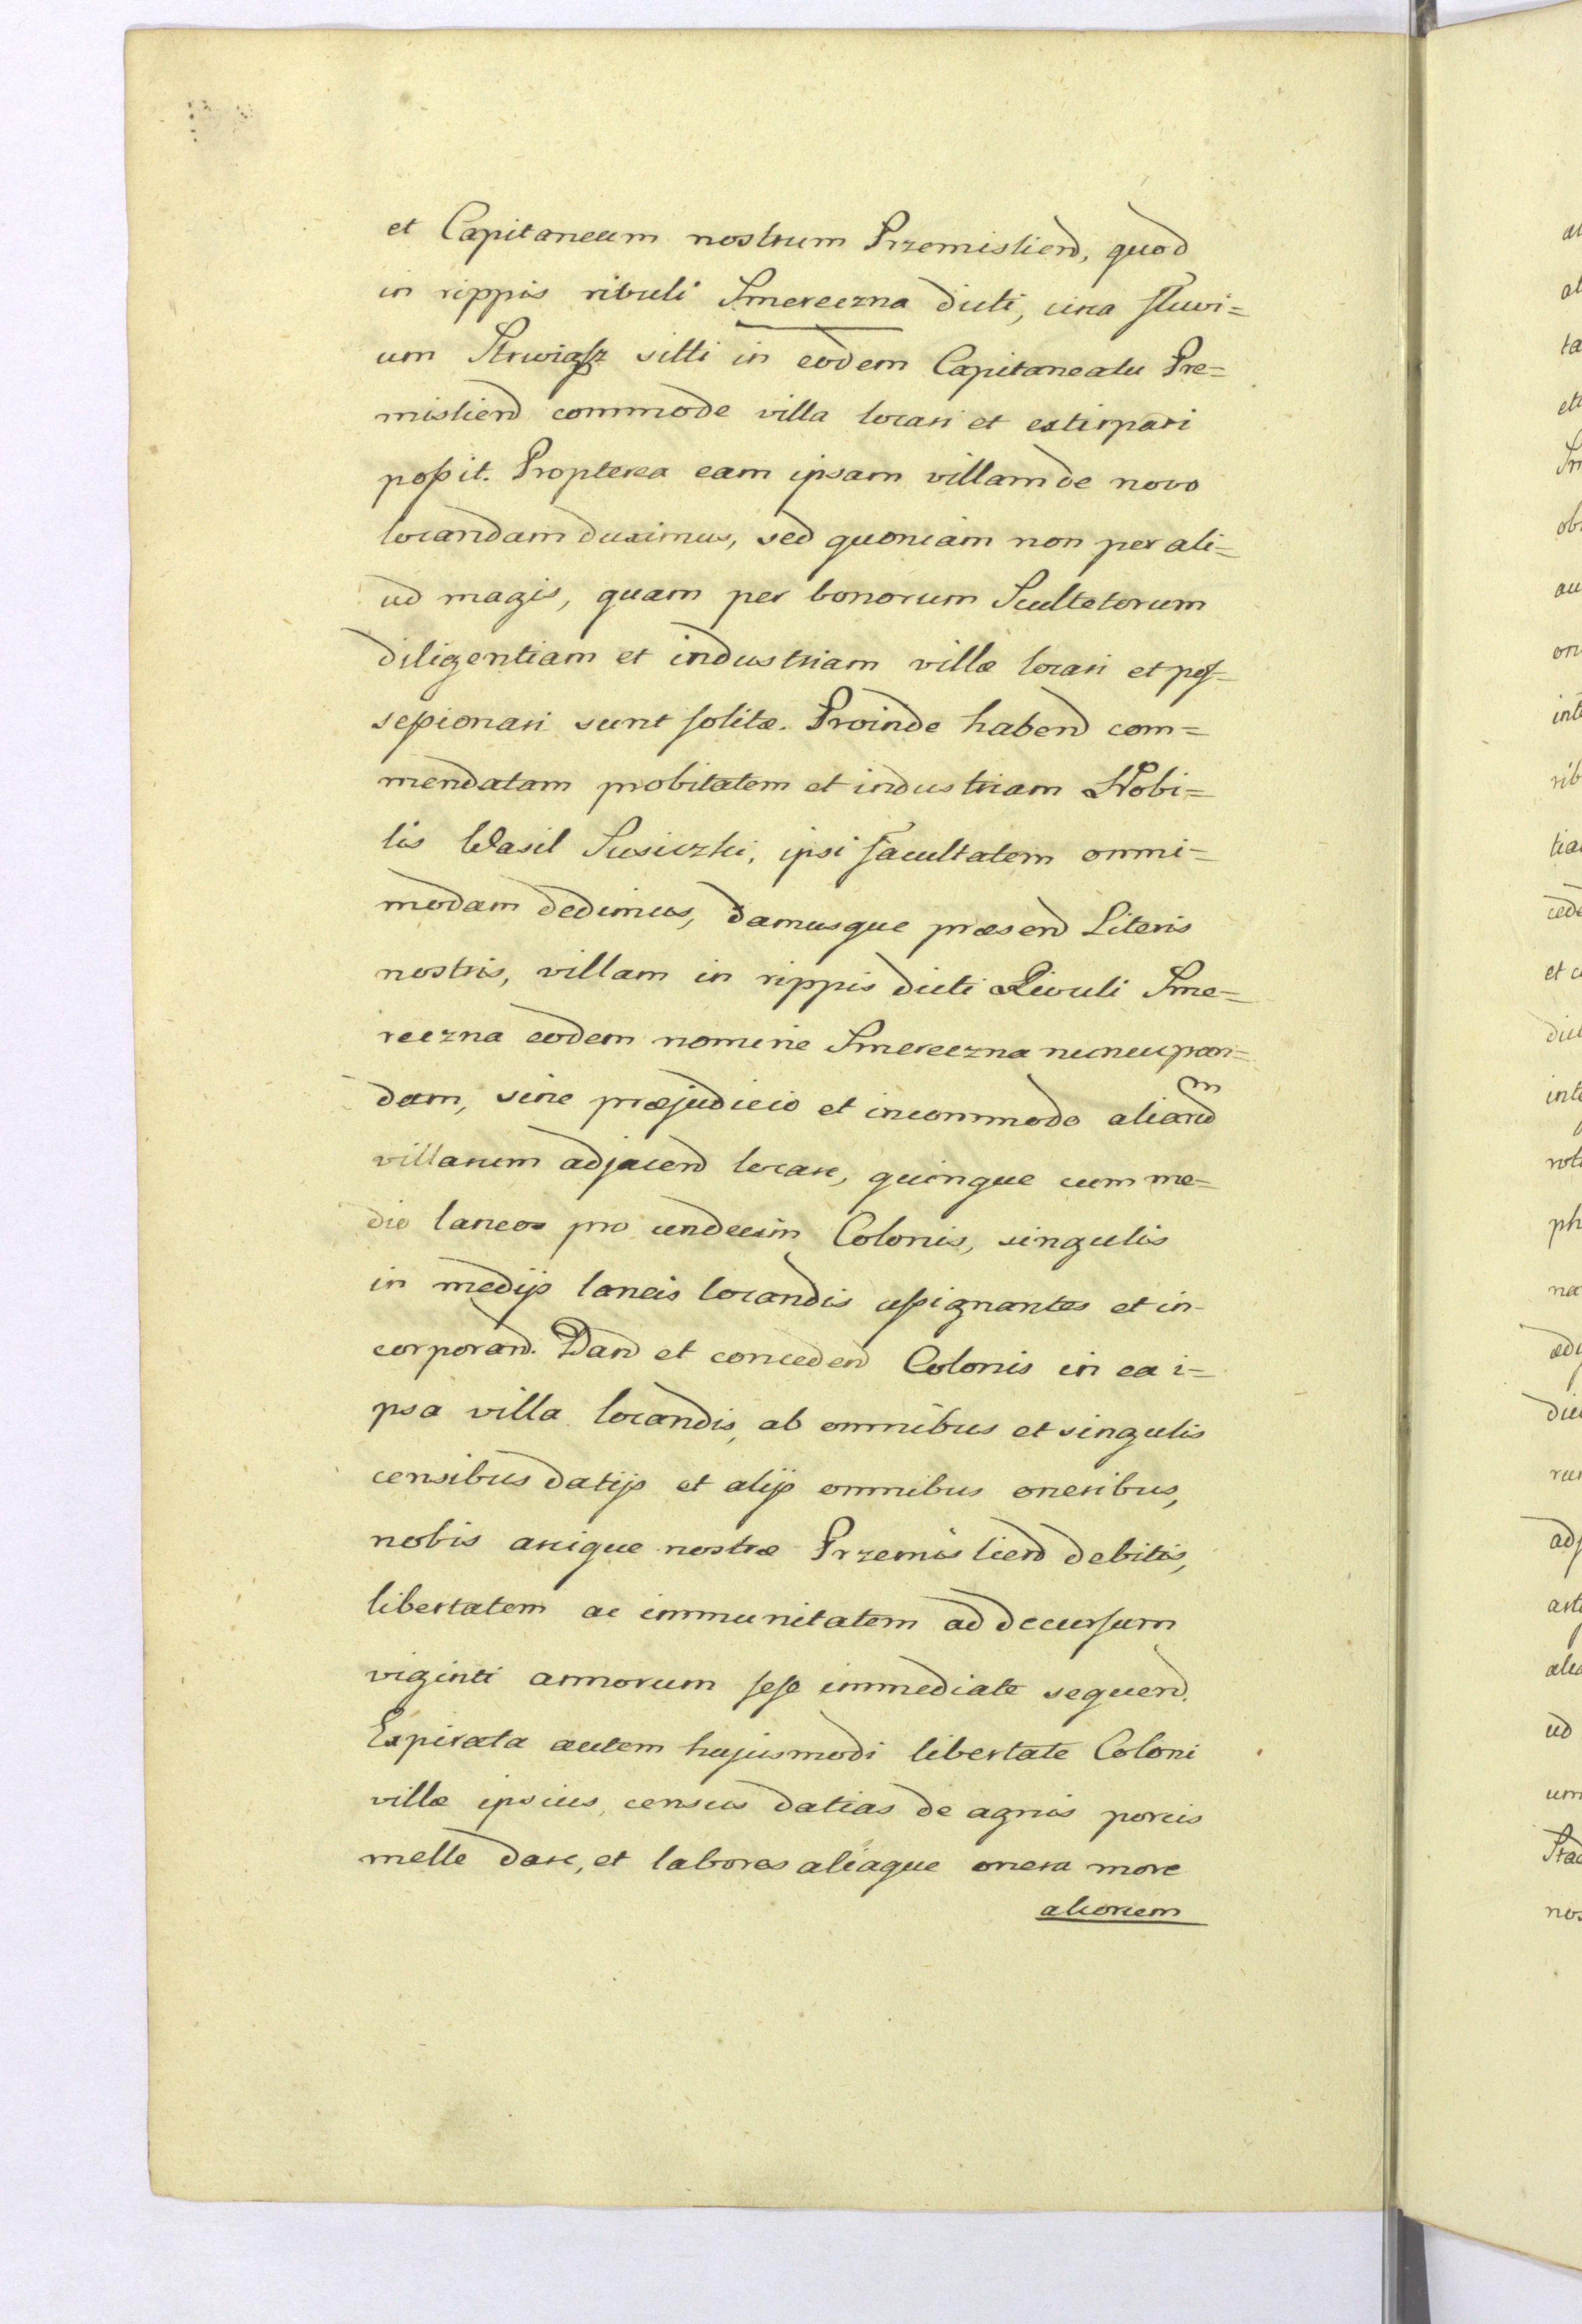 et Capitaneum nostrum Przemislien̄d, quod
in rippis ribuli Smereczna dicti, circa fluvi=
um Strwiąsz sitti in eodem Capitaneatu Pre=
mislien̄d commode villa locari et extirpari
poßit. Propterea eam ipsam villam de novo
locandam duximus, sed quoniam non per ali=
ud magis, quam per bonorum Scultetorum
diligentiam et industriam villæ locari et poſ=
seßionari sunt ſolitæ. Proinde habend com=
mendatam probitatem et industriam Nobi=
lis Wasil Susiczki, ipsi facultatem omni=
modam dedimus, damusque præsend Literis
nostris, villam in rippis dicti Rivuli Sme=
reczna eodem nomine Smereczna nuncupan=
dam, sine præjudicio et incommodo aliarum
villarum adjacend locare, quinque cum me=
dio laneos pro undecim Colonis, singulis
in medijs laneis locandis aßignantes et in-
corporand. Dand et conceden̄d Colonis in ea i=
psa villa locandis, ab omnibus et singulis
censibus datijs et alijs omnibus oneribus,
nobis arcique nostræ Przemislien̄d debitis,
libertatem ac immunitatem ad decurſum
viginti annorum ſeſe immediate sequend.
Expirata autem hujusmodi libertate Coloni
villæ ipsius, census datias de agnis porcis
melle dare, et labores aliaque onera more
aliorum
al
al
ta
ob
au
on
inte
rib
tia
cede
et c
dic
inte
ph
na
ædi
dic
ad
um
Stad
nos